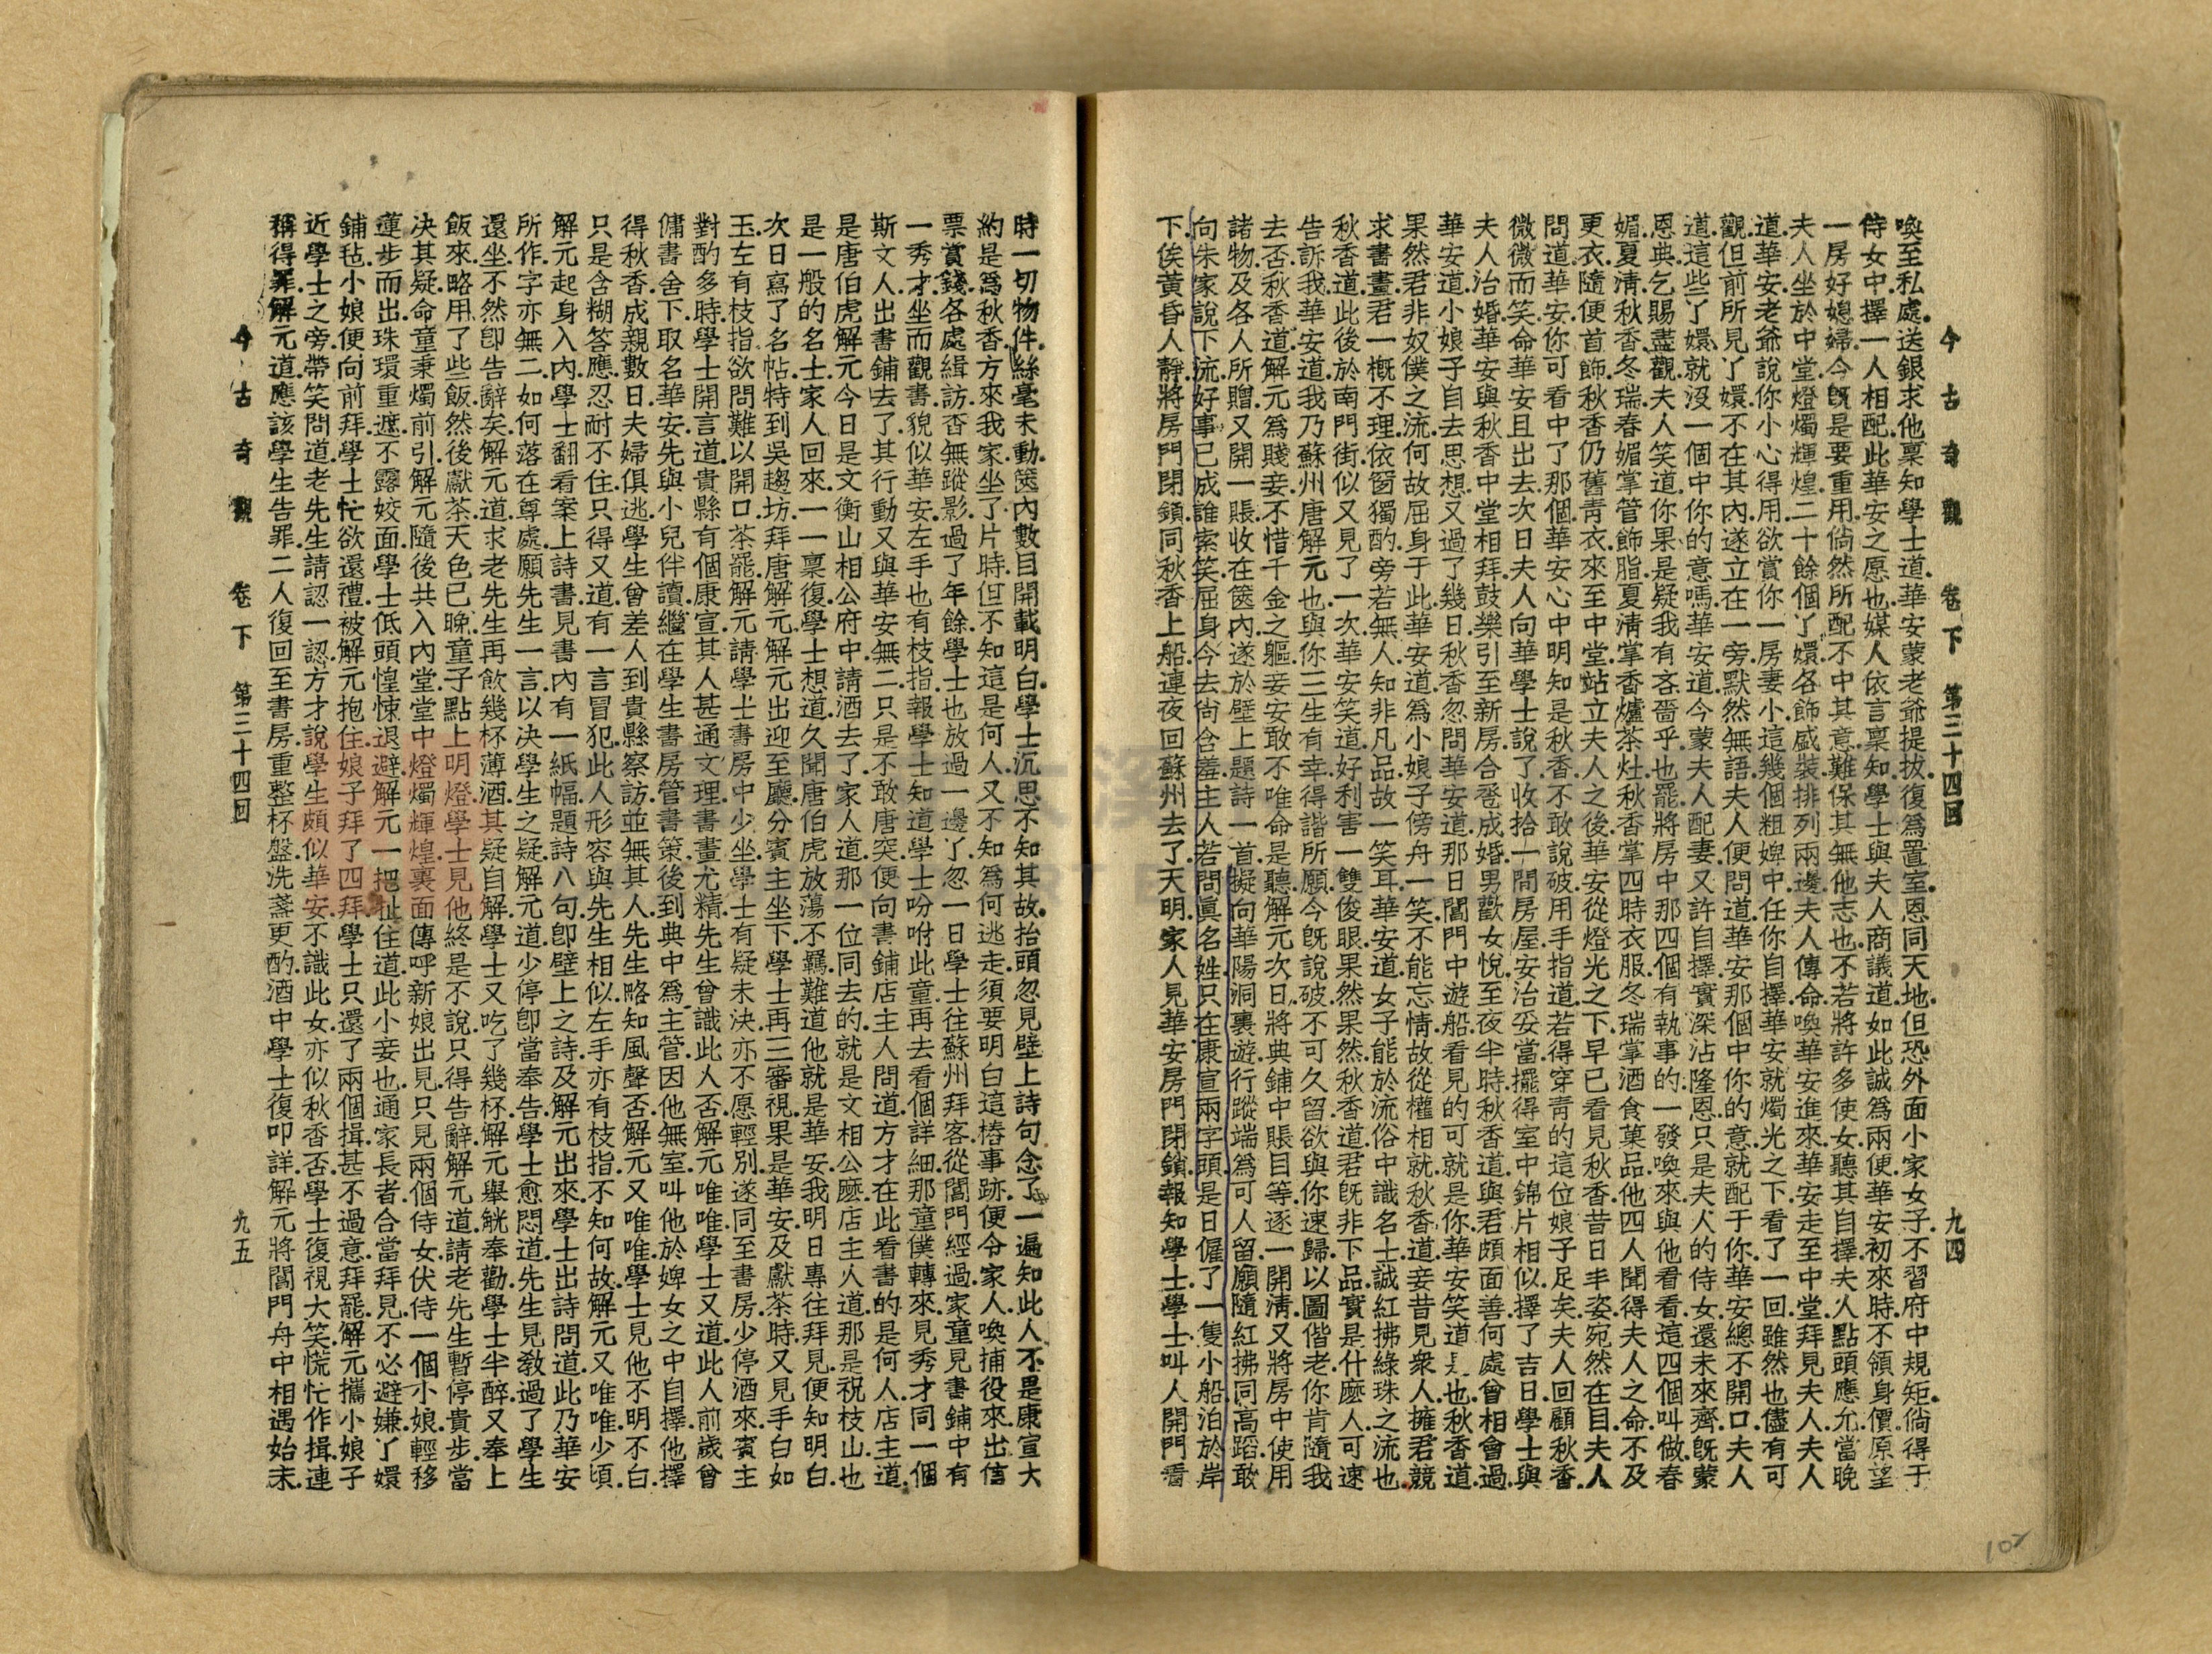 今古奇觀　卷下　第三十四回　九四
喚至私處.送銀求他稟知學士道.華安蒙老爺提拔.復爲置室.恩同天地.但恐外面小家女子.不習府中規矩.倘得于
侍女中擇一人相配.此華安之愿也.媒人依言稟知學士.與夫人商議道.如此誠爲兩便.華安初來時.不領身價.原望
一房好媳婦.今旣是要重用.倘然所配不中其意.難保其無他志也.不若將許多使女.聽其自擇.夫人點頭應允.當晚
夫人坐於中堂.燈燭輝煌.二十餘個丫嬛.各飾盛裝.排列兩邊.夫人傳命喚華安進來.華安走至中堂.拜見夫人.夫人
道.華安.老爺說你小心得用.欲賞你一房妻小.這幾個粗婢中.任你自擇.華安就燭光之下.看了一回.雖然也儘有可
觀.但前所見丫嬛不在其內.遂立在一旁.默然無語.夫人便問道.華安.那個中你的意.就配于你.華安總不開口.夫人
道.這些丫嬛.就沒一個中你的意嗎.華安道.今蒙夫人配妻.又許自擇.實深沾隆恩.只是夫人的侍女.還未來齊.旣蒙
恩典.乞賜盡觀.夫人笑道.你果是疑我有吝嗇乎.也罷.將房中那四個有執事的.一發喚來與他看看.這四個叫做春
媚.夏淸.秋香.冬瑞.春媚掌管飾脂.夏淸掌香爐茶灶.秋香掌四時衣服.冬瑞掌酒食菓品.他四人聞得夫人之命.不及
更衣.隨便首飾.秋香仍舊靑衣.來至中堂.站立夫人之後.華安從燈光之下.早已看見秋香.昔日丰姿.宛然在目.夫人
問道.華安.你可看中了那個.華安心中明知是秋香.不敢說破.用手指道.若得穿靑的這位娘子足矣.夫人回顧秋香.
微微而笑.命華安且出去.次日夫人向華學士說了.收拾一間房屋.安治妥當.擺得室中錦片相似.擇了吉日.學士與
夫人治婚.華安與秋香中堂相拜.鼓樂引至新房.合巹成婚.男歡女悅.至夜半時.秋香道.與君頗面善.何處曾相會過.
華安道.小娘子自去思想.又過了幾日.秋香忽問華安道.那日閶門中遊船看見的.可就是你.華安笑道.是也.秋香道.
果然君非奴僕之流.何故屈身于此.華安道.爲小娘子傍舟一笑.不能忘情.故從權相就.秋香道.妾昔見衆人擁君.競
求書畫.君一槪不理.依窗獨酌.旁若無人.知非凡品.故一笑耳.華安道.女子能於流俗中識名士.誠紅拂綠珠之流也.
秋香道.此後於南門街.似又見了一次.華安笑道.好利害一雙俊眼.果然果然.秋香道.君旣非下品.實是什麽人.可速
告訴我.華安道.我乃蘇州唐解元也.與你三生有幸.得諧所願.今旣說破.不可久留.欲與你速歸.以圖偕老.你肯隨我
去否.秋香道.解元爲賤妾.不惜千金之軀.妾安敢不唯命是聽.解元次日.將典鋪中賬目等.逐一開淸.又將房中使用
諸物.及各人所贈.又開一賬.收在篋內.遂於壁上題詩一首.擬向華陽洞裏遊.行蹤端爲可人留.願隨紅拂同高蹈.敢
向朱家說下流.好事已成誰索笑.屈身今去尙含羞.主人若問眞名姓.只在康宣兩字頭.是日僱了一隻小船.泊於岸
下.俟黃昏人靜.將房門閉鎖.同秋香上船.連夜回蘇州去了.天明.家人見華安房門閉鎖.報知學士.學士叫人開門看
時.一切物件.絲毫未動.篋內數目.開載明白.學士沉思.不知其故.抬頭忽見壁上詩句.念了一遍.知此人不是康宣.大
約是爲秋香.方來我家.坐了片時.但不知這是何人.又不知爲何逃走.須要明白這樁事跡.便令家人.喚捕役來.出信
票賞錢.各處緝訪.杳無蹤影.過了年餘.學士也放過一邊了.忽一日.學士往蘇州拜客.從閶門經過.家童見書鋪中有
一秀才.坐而觀書.貌似華安.左手也有枝指.報學士知道.學士吩咐此童.再去看個詳細.那童僕轉來.見秀才同一個
斯文人.出書鋪去了.其行動又與華安無二.只是不敢唐突.便向書鋪店主人問道.方才在此看書的是何人.店主道.
是唐伯虎解元.今日是文衡山相公府中請酒去了.家人道.那一位同去的.就是文相公麽.店主人道.那是祝枝山.也
是一般的名士.家人回來.一一稟復.學士想道.久聞唐伯虎放蕩不羈.難道他就是華安.我明日專往拜見.便知明白.
次日寫了名帖.特到吳趨坊.拜唐解元.解元出迎至廳.分賓主坐下.學士再三審視.果是華安.及獻茶時.又見手白如
玉.左有枝指.欲問難以開口.茶罷.解元請學士書房中少坐.學士有疑未決.亦不愿輕別.遂同至書房.少停酒來.賓主
對酌多時.學士開言道.貴縣有個康宣.其人甚通文理.書畫尤精.先生曾識此人否.解元唯唯.學士又道.此人前歲曾
傭書舍下.取名華安.先與小兒伴讀.繼在學生書房管書策.後到典中爲主管.因他無室.叫他於婢女之中自擇.他擇
得秋香成親.數日.夫婦俱逃.學生曾差人到貴縣察訪.並無其人.先生略知風聲否.解元又唯唯.學士見他不明不白.
只是含糊答應.忍耐不住.只得又道.有一言冒犯.此人形容.與先生相似.左手亦有枝指.不知何故.解元又唯唯.少頃.
解元起身入內.學士翻看案上詩書.見書內有一紙幅.題詩八句.卽壁上之詩.及解元出來.學士出詩問道.此乃華安
所作.字亦無二.如何落在尊處.願先生一言.以決學生之疑.解元道.少停卽當奉告.學士愈悶.道.先生見敎過了.學生
還坐.不然卽告辭矣.解元道.求老先生再飲幾杯薄酒.其疑自解.學士又吃了幾杯.解元舉觥奉勸.學士半醉.又奉上
飯來.略用了些飯.然後獻茶.天色已晚.童子點上明燈.學士見他終是不說.只得告辭.解元道.請老先生暫停貴步.當
決其疑.命童秉燭前引.解元隨後.共入內堂.堂中燈燭輝煌.裏面傳呼新娘出見.只見兩個侍女.伏侍一個小娘.輕移
蓮步而出.珠環重遮.不露姣面.學士低頭惶悚退避.解元一把扯住道.此小妾也.通家長者.合當拜見.不必避嫌.丫嬛
鋪毡.小娘便向前拜.學士忙欲還禮.被解元抱住.娘子拜了四拜.學士只還了兩個揖.甚不過意.拜罷.解元攜小娘子
近學士之旁.帶笑問道.老先生請認一認.方才說學生頗似華安.不識此女亦似秋香否.學士復視大笑.慌忙作揖.連
稱得罪.解元道.應該學生告罪.二人復回至書房.重整杯盤.洗盞更酌.酒中學士復叩詳.解元將閶門舟中相遇始末.
今古奇觀　卷下　第三十四回　九五
102